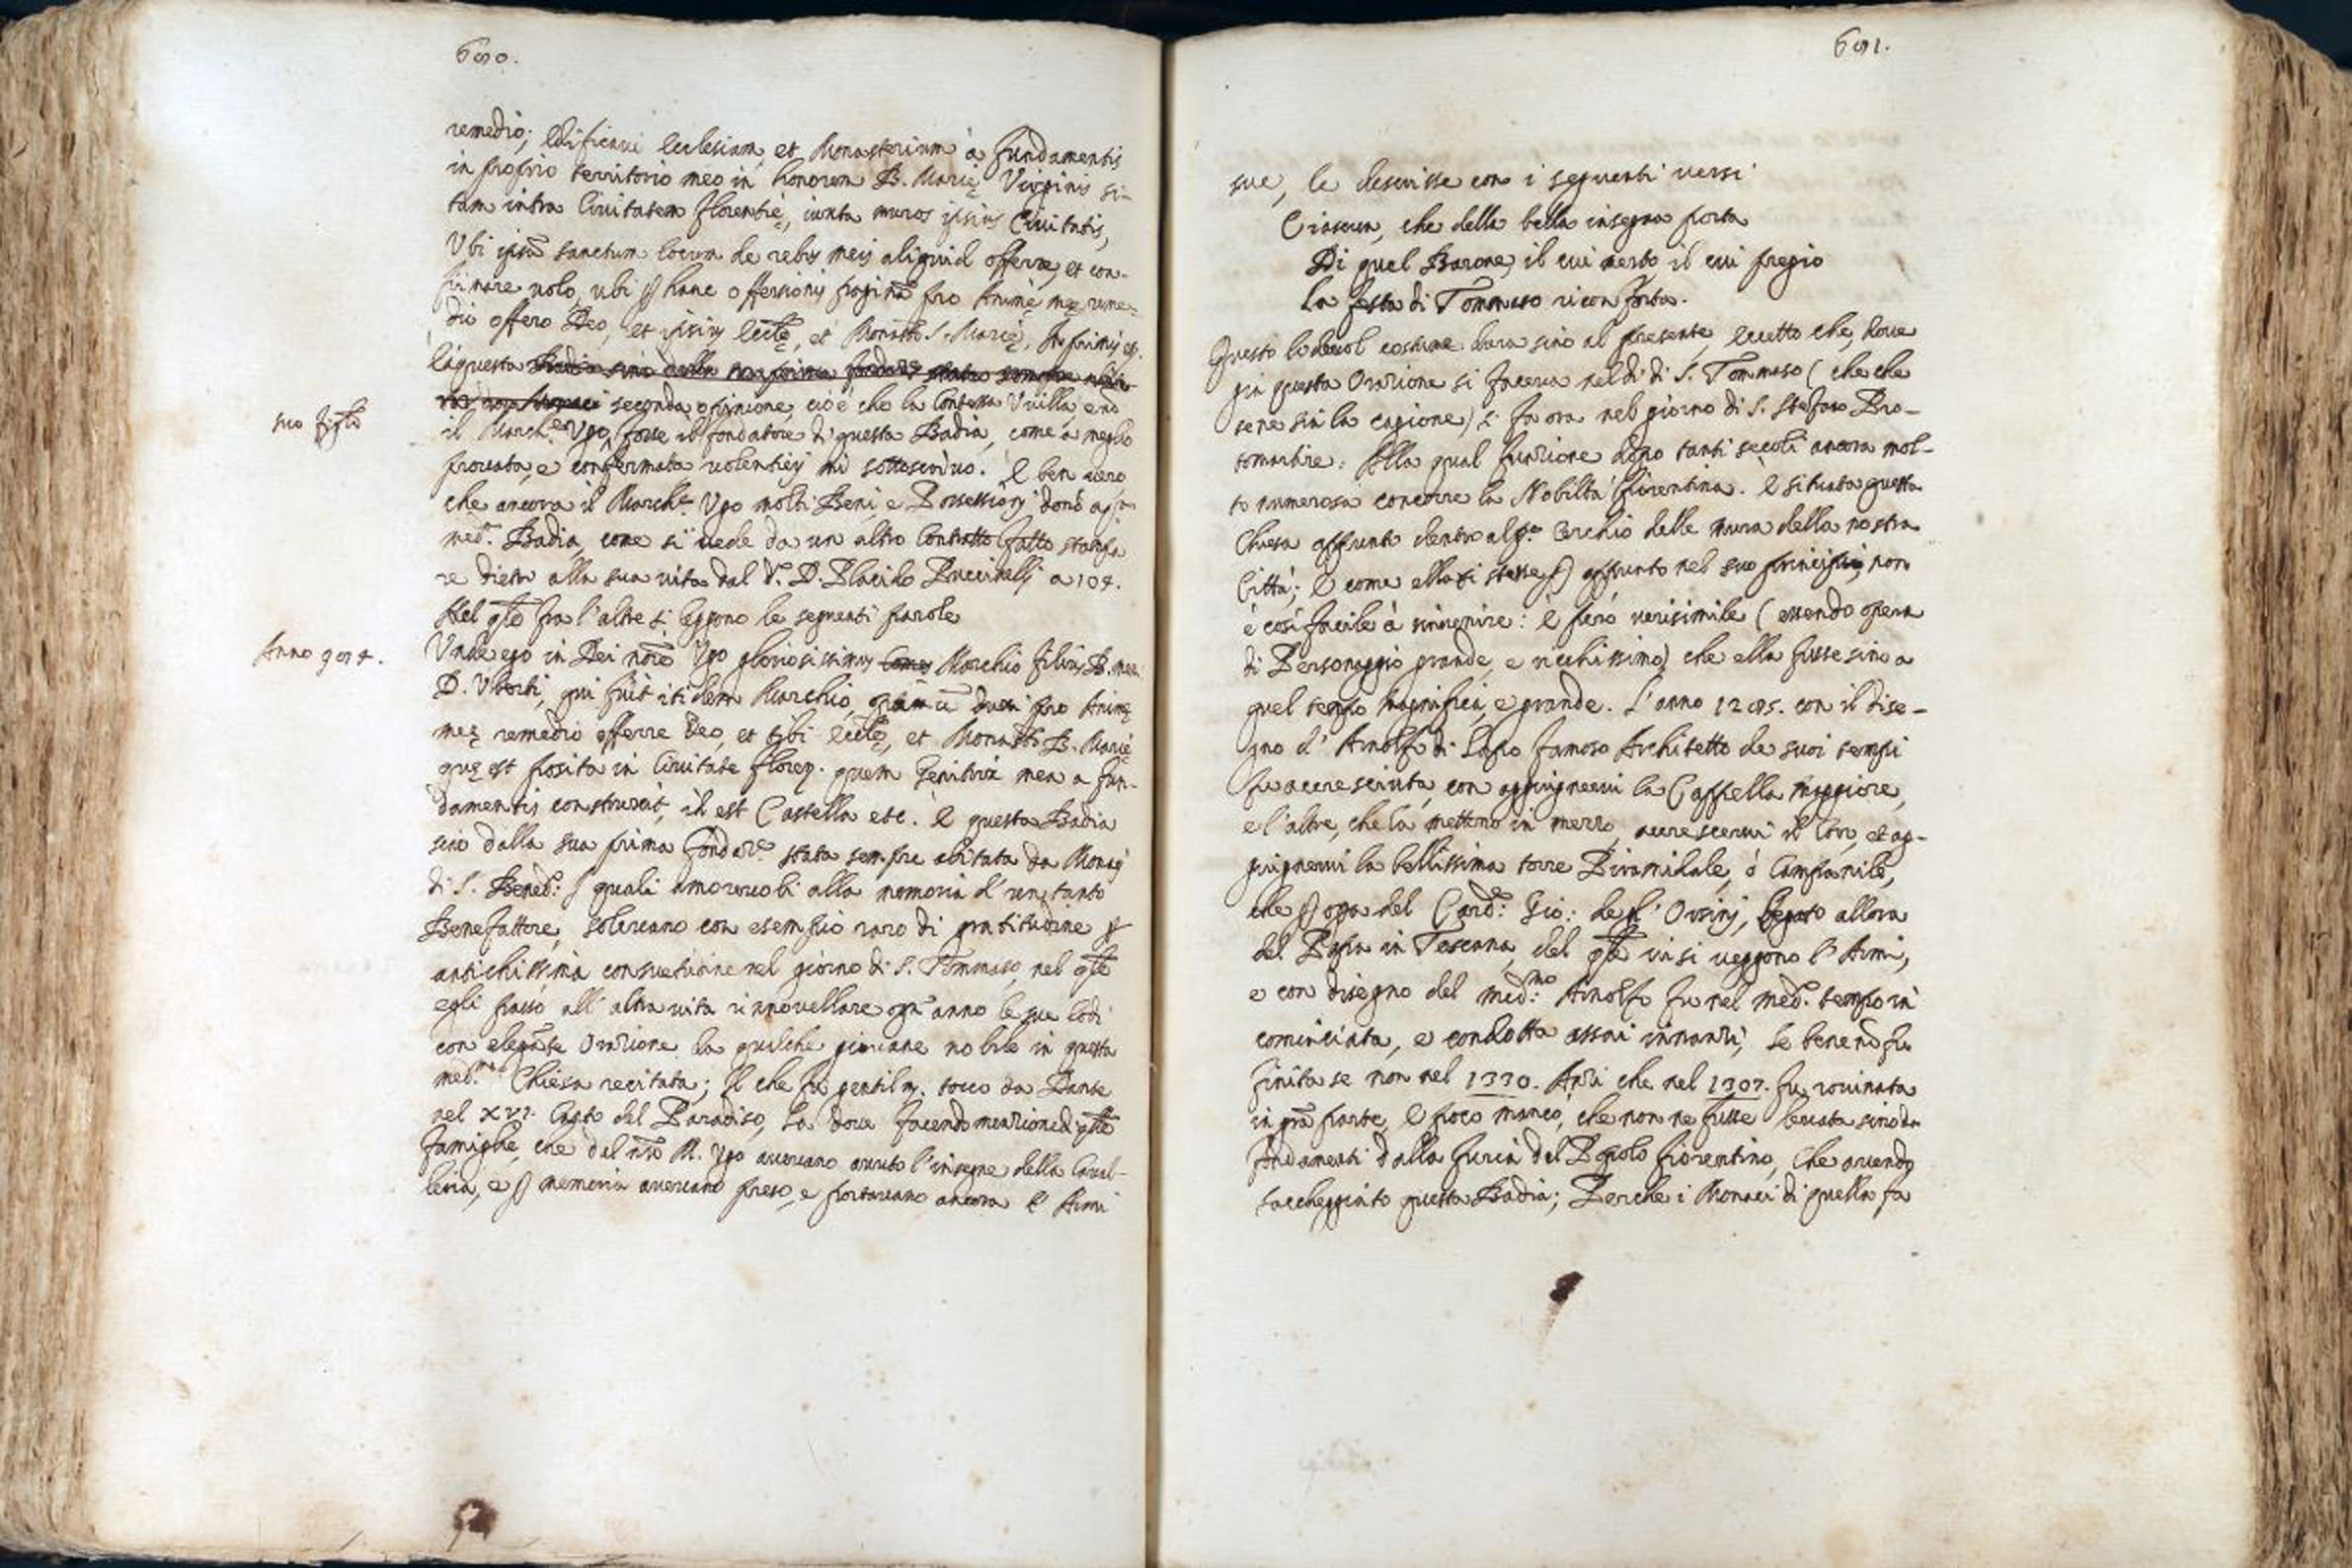 690.
remedio; Edificavi Ecclesiam, et Monasterium à fundamentis
in proprio territorio meo in honorem B. Marię Virginis si-
tam intra Civitatem Florentię, iuxta muros ipsius Civitatis,
Ubi ipsũ sanctum locum de rebus meis aliquid offerre, et con-
firmare volo, ubi ꝑ hanc offersionis paginã pro Animę meę reme-
dio offero Deo, et ipsius Ecclę, et Monast. S. Marię, In primis etc.
La questa Badia sino dalla sua prima fondaz.e stata sempre abita-
ta da Monaci seconda opinione, cioè che la Contessa Villa, e nõ
suo figlo
il March.e Ugo, fosse il fondatore di questa Badia, come a meglio
provata, e confermata volentieri mi sottoscrivo. E ben vero
che ancora il March.e Ugo molti Beni, e Possessioni donò a
med.a Badia, come si vede da un altro Contratto fatto stampa
re dietro alla sua vita dal P. D. Placido Puccinelli a 104.
Nel qle fra l'altre si leggono le seguenti parole
Anno 994.
Unde ego in Dei nõie Ugo gloriosissimus Comes Marchio filius B. mem.
D. Uberti, qui fuit itidem Marchio, pro Animę
meę remedio offerre Deo, et tibi Ecclę, et Monast. B. Marię
quę est posita in Civitate Floren. quem Genitrix mea a fun-
damentis construxit, id est Castella etc. E questa Badia
sino dalla sua prima fondaz.e stata sempre abitata da Monaci
di S. Bened.: I quali amorevoli alla memoria d'un tanto
Benefattore, solevano con esempio raro di gratitudine ꝑ
antichissima consuetudine nel giorno di S. Tommaso, nel qle
egli passò all'altra vita rinnovellare ogn'anno le sue lodi
con elegãte Orazione da qualche giovane nobile in questa
med.ma Chiesa recitata; Il che fu gentilm. tocco da Dante
nel XVI. Canto del Paradiso, La dove facendo menzione di qlle
famiglie, che dal nr̃o M. Ugo avevano avuto l'insegne della Caval-
leria, e ꝑ memoria avevano preso, e portavano ancora l'Armi
691.
sue, le descrisse con i seguenti versi
Ciascun, che della bella insegna porta
Di quel Barone, il cui nerbo il cui pregio
La festa di Tommaso riconforta.
Questo lodevol costume dura sino al presente, eccetto che, dove
già questa Orazione si faceva nel dì di S. Tommaso (che che
se ne sia la cagione) si fa ora nel giorno di S. Stefano Pro-
tomartire: Alla qual funzione dopo tanti secoli ancora mol-
to numerosa concorre la Nobiltà fiorentina. È situata questa
Chiesa appunto dentro al p.o Cerchio delle mura della nostra
Città; e come ella si stesse ꝑ appunto nel suo principio, non
è così facile à rinvenire: è però verisimile (essendo opera
di Personaggio grande, e ricchissimo) che ella fusse sino a
quel tempo magnifica, e grande. L'anno 1295. con il dise-
gno d'Arnolfo di Lapo famoso Architetto de suoi tempi
fu accresciuta, con aggiugnervi la Cappella maggiore,
e l'altre, che la mettono in mezzo, accrescervi il Coro, et ag-
giugnervi la bellissima torre Piramidale, ò Campanile,
che ꝑ opa del Card.: Gio: degl'Orsini, Legato allora
del Papa in Toscana, del qle vi si veggono l'Armi,
e con disegno del med.mo Arnolfo fu nel med.o tempo in
cominciata, e condotta assai innanzi, se bene nõ fu
finita se non nel 1330. Anzi che nel 1307. fu rovinata
in grã parte, e poco mancò, che non ne fusse levata sino da
fondamenti dalla furia del Popolo fiorentino, Che avendo
saccheggiato questa Badia; Perche i Monaci di quella fa